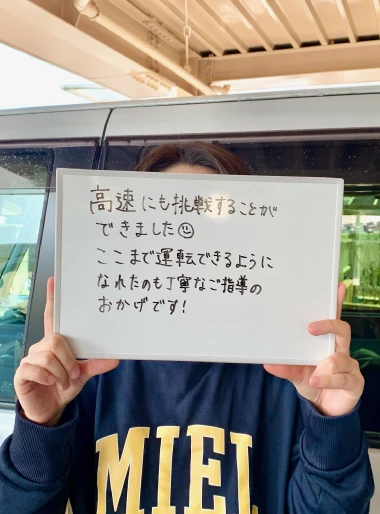 高速にも挑戦することが
できました☺
ここまで運転できるように
なれたのも丁寧なご指導の
おかげです!
MIEL